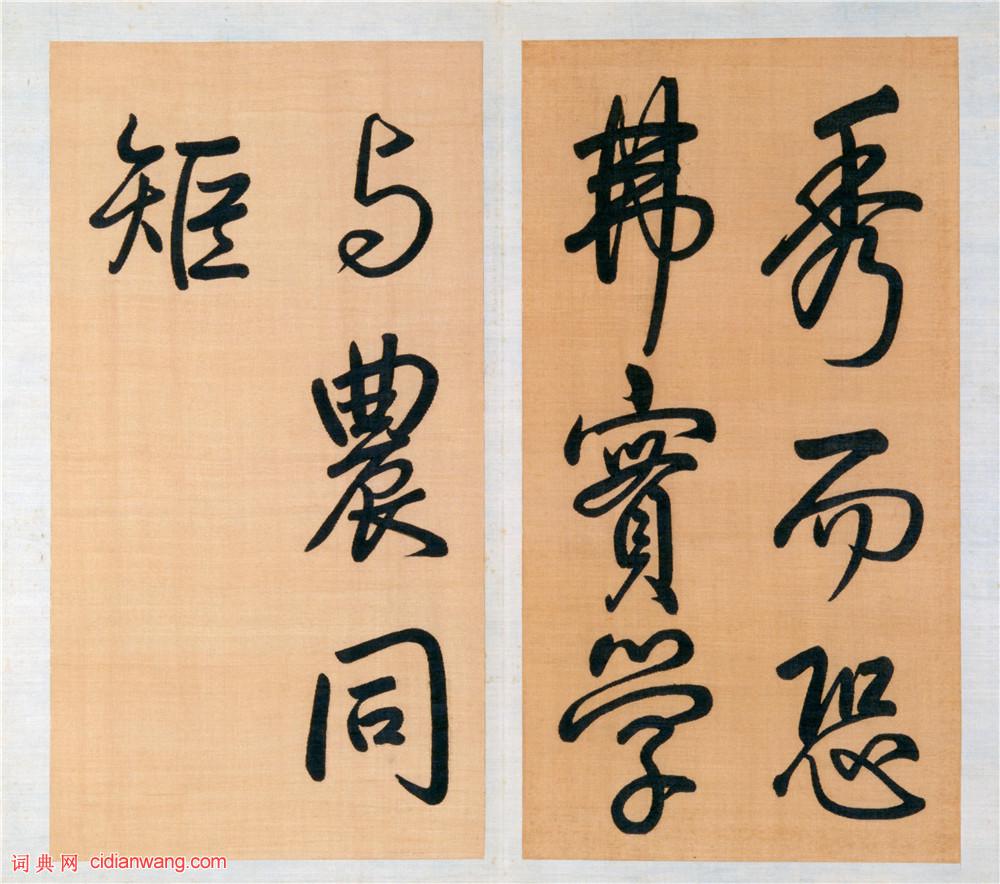 秀而恐
弗實學
与農同
矩
词典网 cidianwang.com